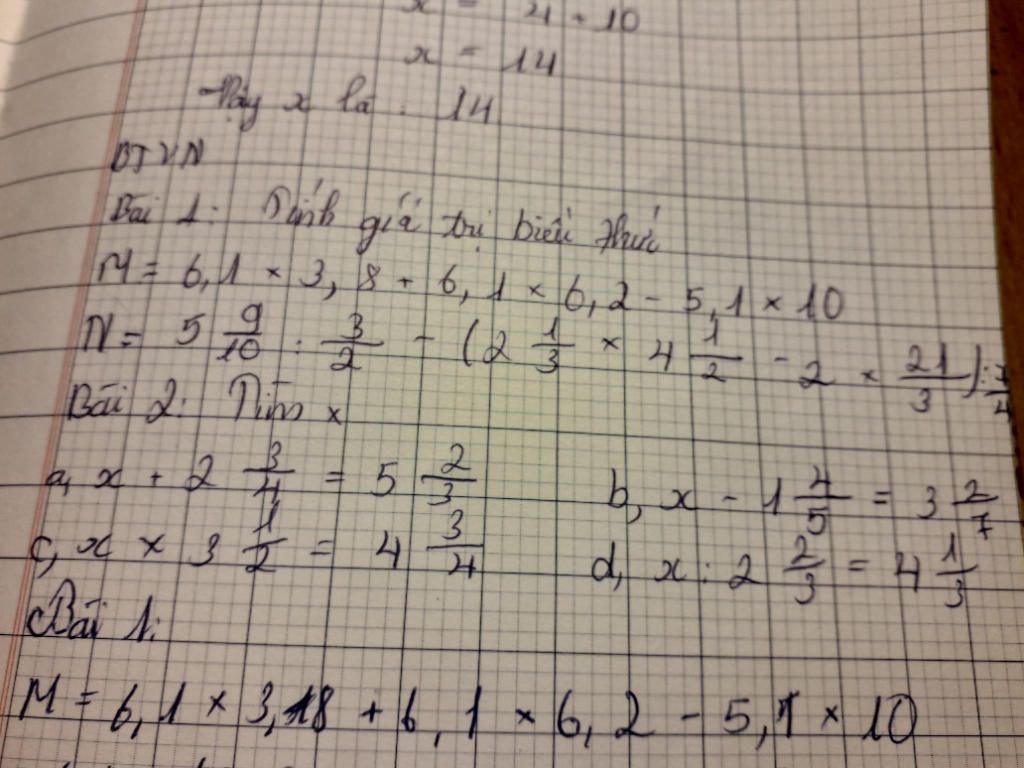 x = 4 + 10
x = 14
Vậy x là : 14
BTVN
Bài 1: Tính giá trị biểu thức
M = 6,1 × 3,8 + 6,1 × 6,2 - 5,1 × 10
N = 5 9/10 : 3/2 - (2 1/3 × 4 1/2 - 2 × 21/3) : 7/4
Bài 2: Tìm x
a, x + 2 3/4 = 5 2/3 b, x - 1 4/5 = 3 2/7
c, x × 3 1/2 = 4 3/4 d, x : 2 2/3 = 4 1/3
Bài 1:
M = 6,1 × 3,8 + 6,1 × 6,2 - 5,1 × 10